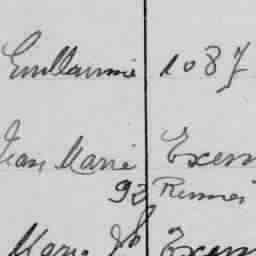 Guillaume 1087
Jean Marie Exem
92 Rennes
Marie Jh Exem